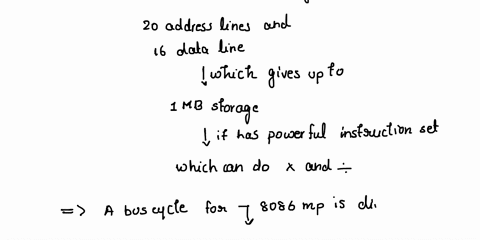 20 address lines and
16 data line
↓ which gives up to
1 MB storage
↓ it has powerful instruction set
which can do x and ÷
=> A bus cycle for 8086 mp is di